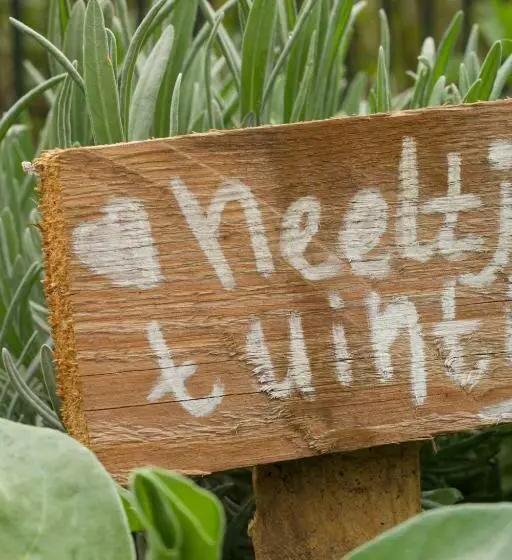 neeltj
tuintj